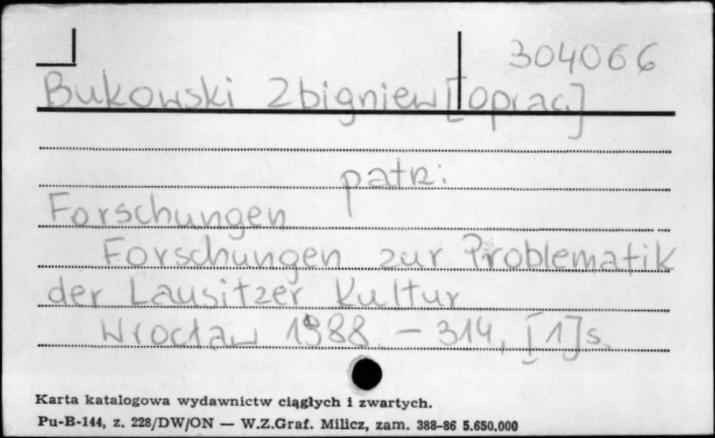 304066
Bukowski Zbigniew [oprac.]
patrz:
Forschungen
Forschungen zur Problematik
der Lausitzer Kultur
Wrocław 1988. – 314, [1] s.
Karta katalogowa wydawnictw ciągłych i zwartych.
Pu-B-144, z. 228/DW/ON — W.Z.Graf. Milicz, zam. 388-86 5.650.000